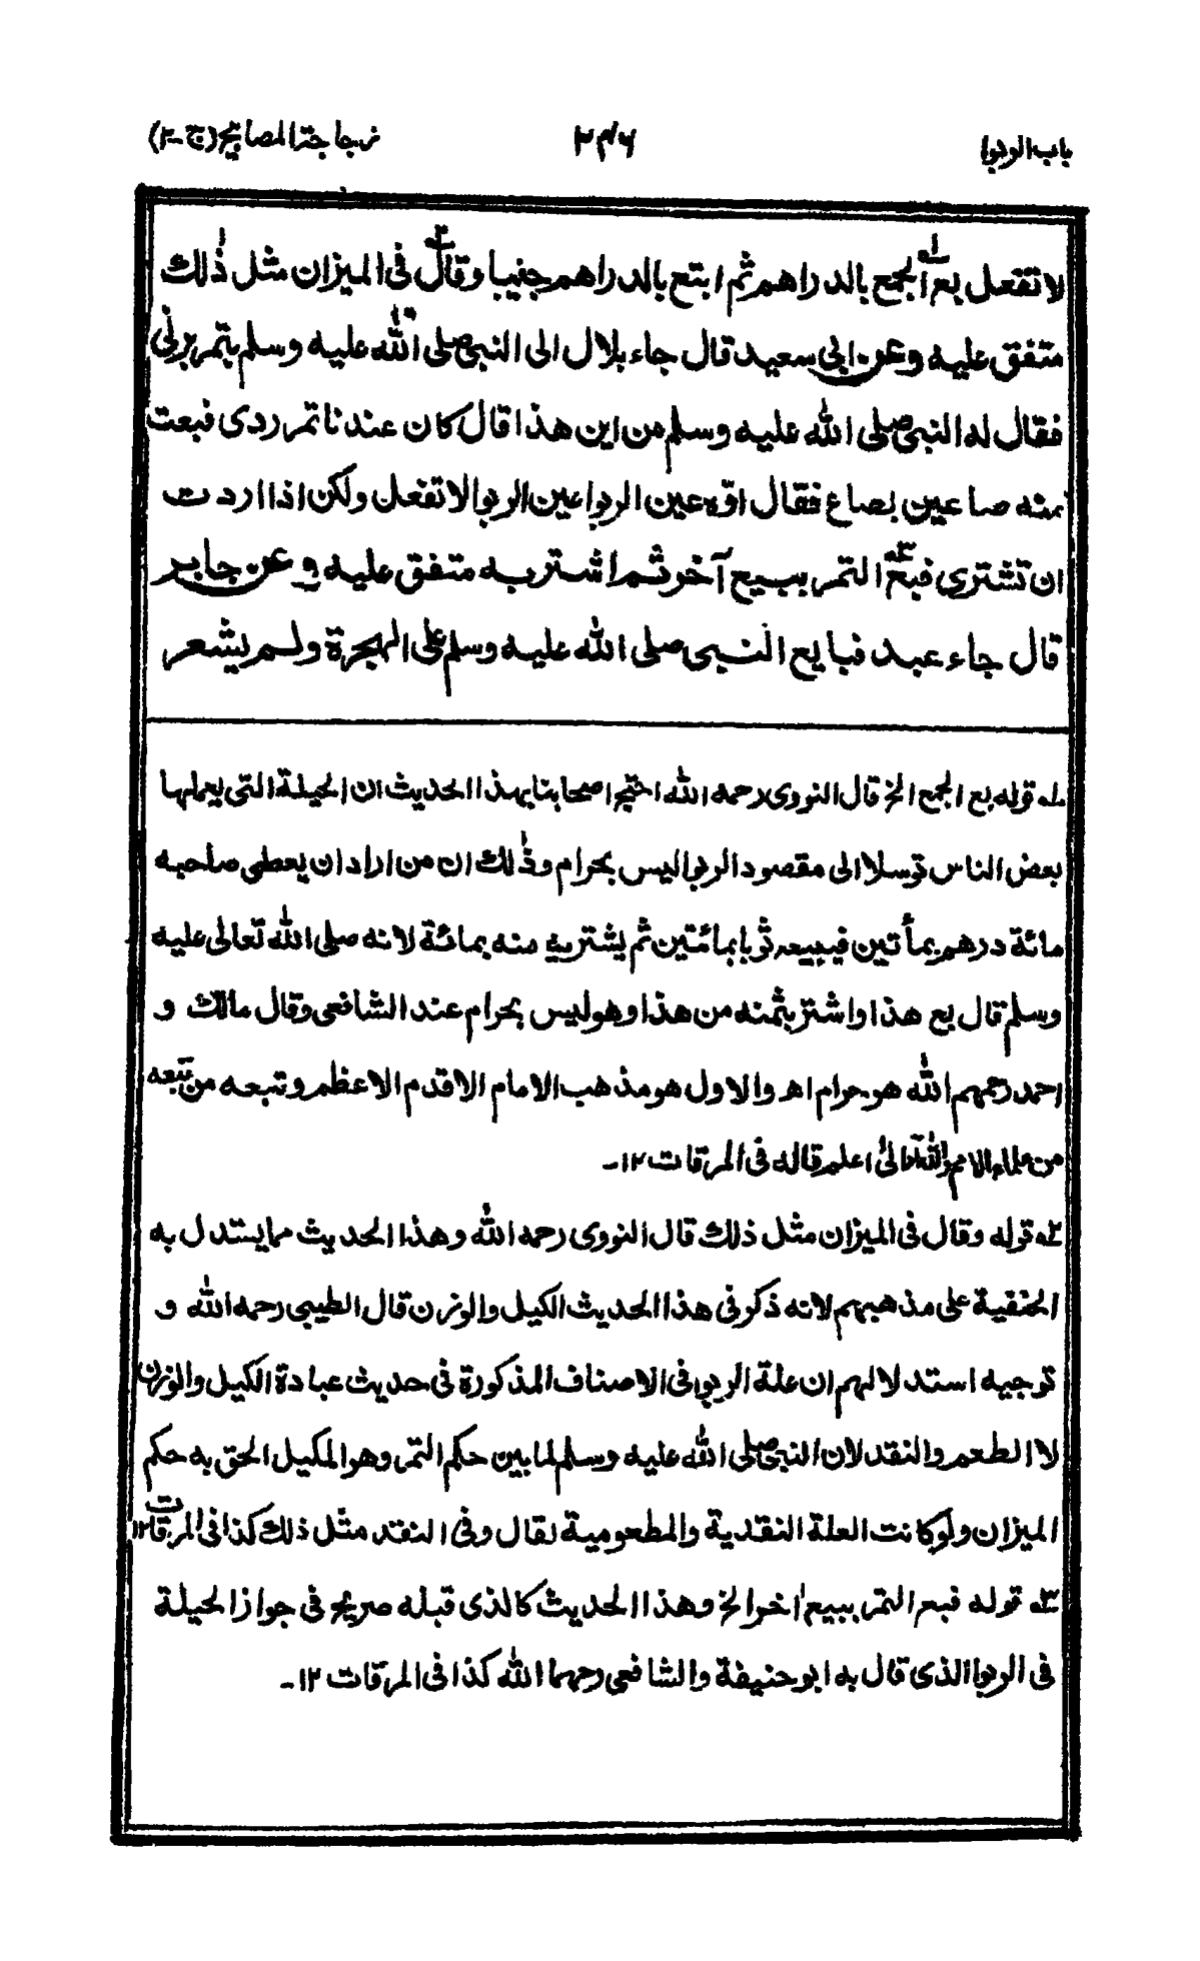 باب الربوا ۲۴۶ زجاجة المصابيح (ج-۲)
لا تفعل بع الجمع بالدراهم ثم ابتع بالدراهم جنيبا وقال فى الميزان مثل ذٰلك
متفق عليه وعن ابى سعيد قال جاء بلال الى النبى صلى الله عليه وسلم بتمر برنى
فقال له النبى صلى الله عليه وسلم من اين هذا قال كان عندنا تمر ردى فبعت
منه صاعين بصاع فقال اوّه عين الربوا عين الربوا لا تفعل ولكن اذا اردت
ان تشترى فبع التمر ببيع آخر ثم اشتر به متفق عليه وعن جابر
قال جاء عبد فبايع النبى صلى الله عليه وسلم على الهجرة ولم يشعر
۱ه قوله بع الجمع الخ قال النووى رحمه الله احتج اصحابنا بهذا الحديث ان الحيلة التى يعملها
بعض الناس توسلا الى مقصود الربوا ليس بحرام وذٰلك ان من اراد ان يعطى صاحبه
مائة درهم بمأتين فيبيعه ثوبا بمائتين ثم يشتريه منه بمائة لانه صلى الله تعالى عليه
وسلم قال بع هذا واشتر بثمنه من هذا وهو ليس بحرام عند الشافعى وقال مالك و
احمد رحمهم الله هو حرام اھ والاول هو مذهب الامام الاقدم الاعظم وتبعه من تبعه
من علماء الامم والله تعالىٰ اعلم قاله فى المرقات ۱۲-
۲ه قوله وقال فى الميزان مثل ذلك قال النووى رحمه الله وهذا الحديث مما يستدل به
الحنفية على مذهبهم لانه ذكر فى هذا الحديث الكيل والوزن قال الطيبى رحمه الله و
توجيه استدلالهم ان علة الربوا فى الاصناف المذكورة فى حديث عبادة الكيل والوزن
لا الطعم والنقد لان النبى صلى الله عليه وسلم لما بين حكم التمر وهو المكيل الحق به حكم
الميزان ولو كانت العلة النقدية والمطعومية لقال وفى النقد مثل ذلك كذا فى المرقات ۱۲
۳ه قوله فبع التمر ببيع اٰخر الخ وهذا الحديث كالذى قبله صريح فى جواز الحيلة
فى الربوا الذى قال به ابو حنيفة والشافعى رحمهما الله كذا فى المرقات ۱۲-